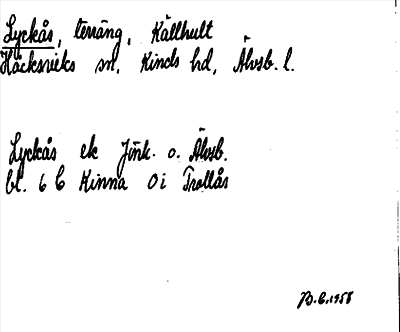 Lyckås, terräng, Källhult
Håcksviks sn, Kinds hd, Älvsb. l.
Lyckås ek Jönk. o. Älvsb.
bl. 6 C Kinna 0 i Trollås
B.C. 1958